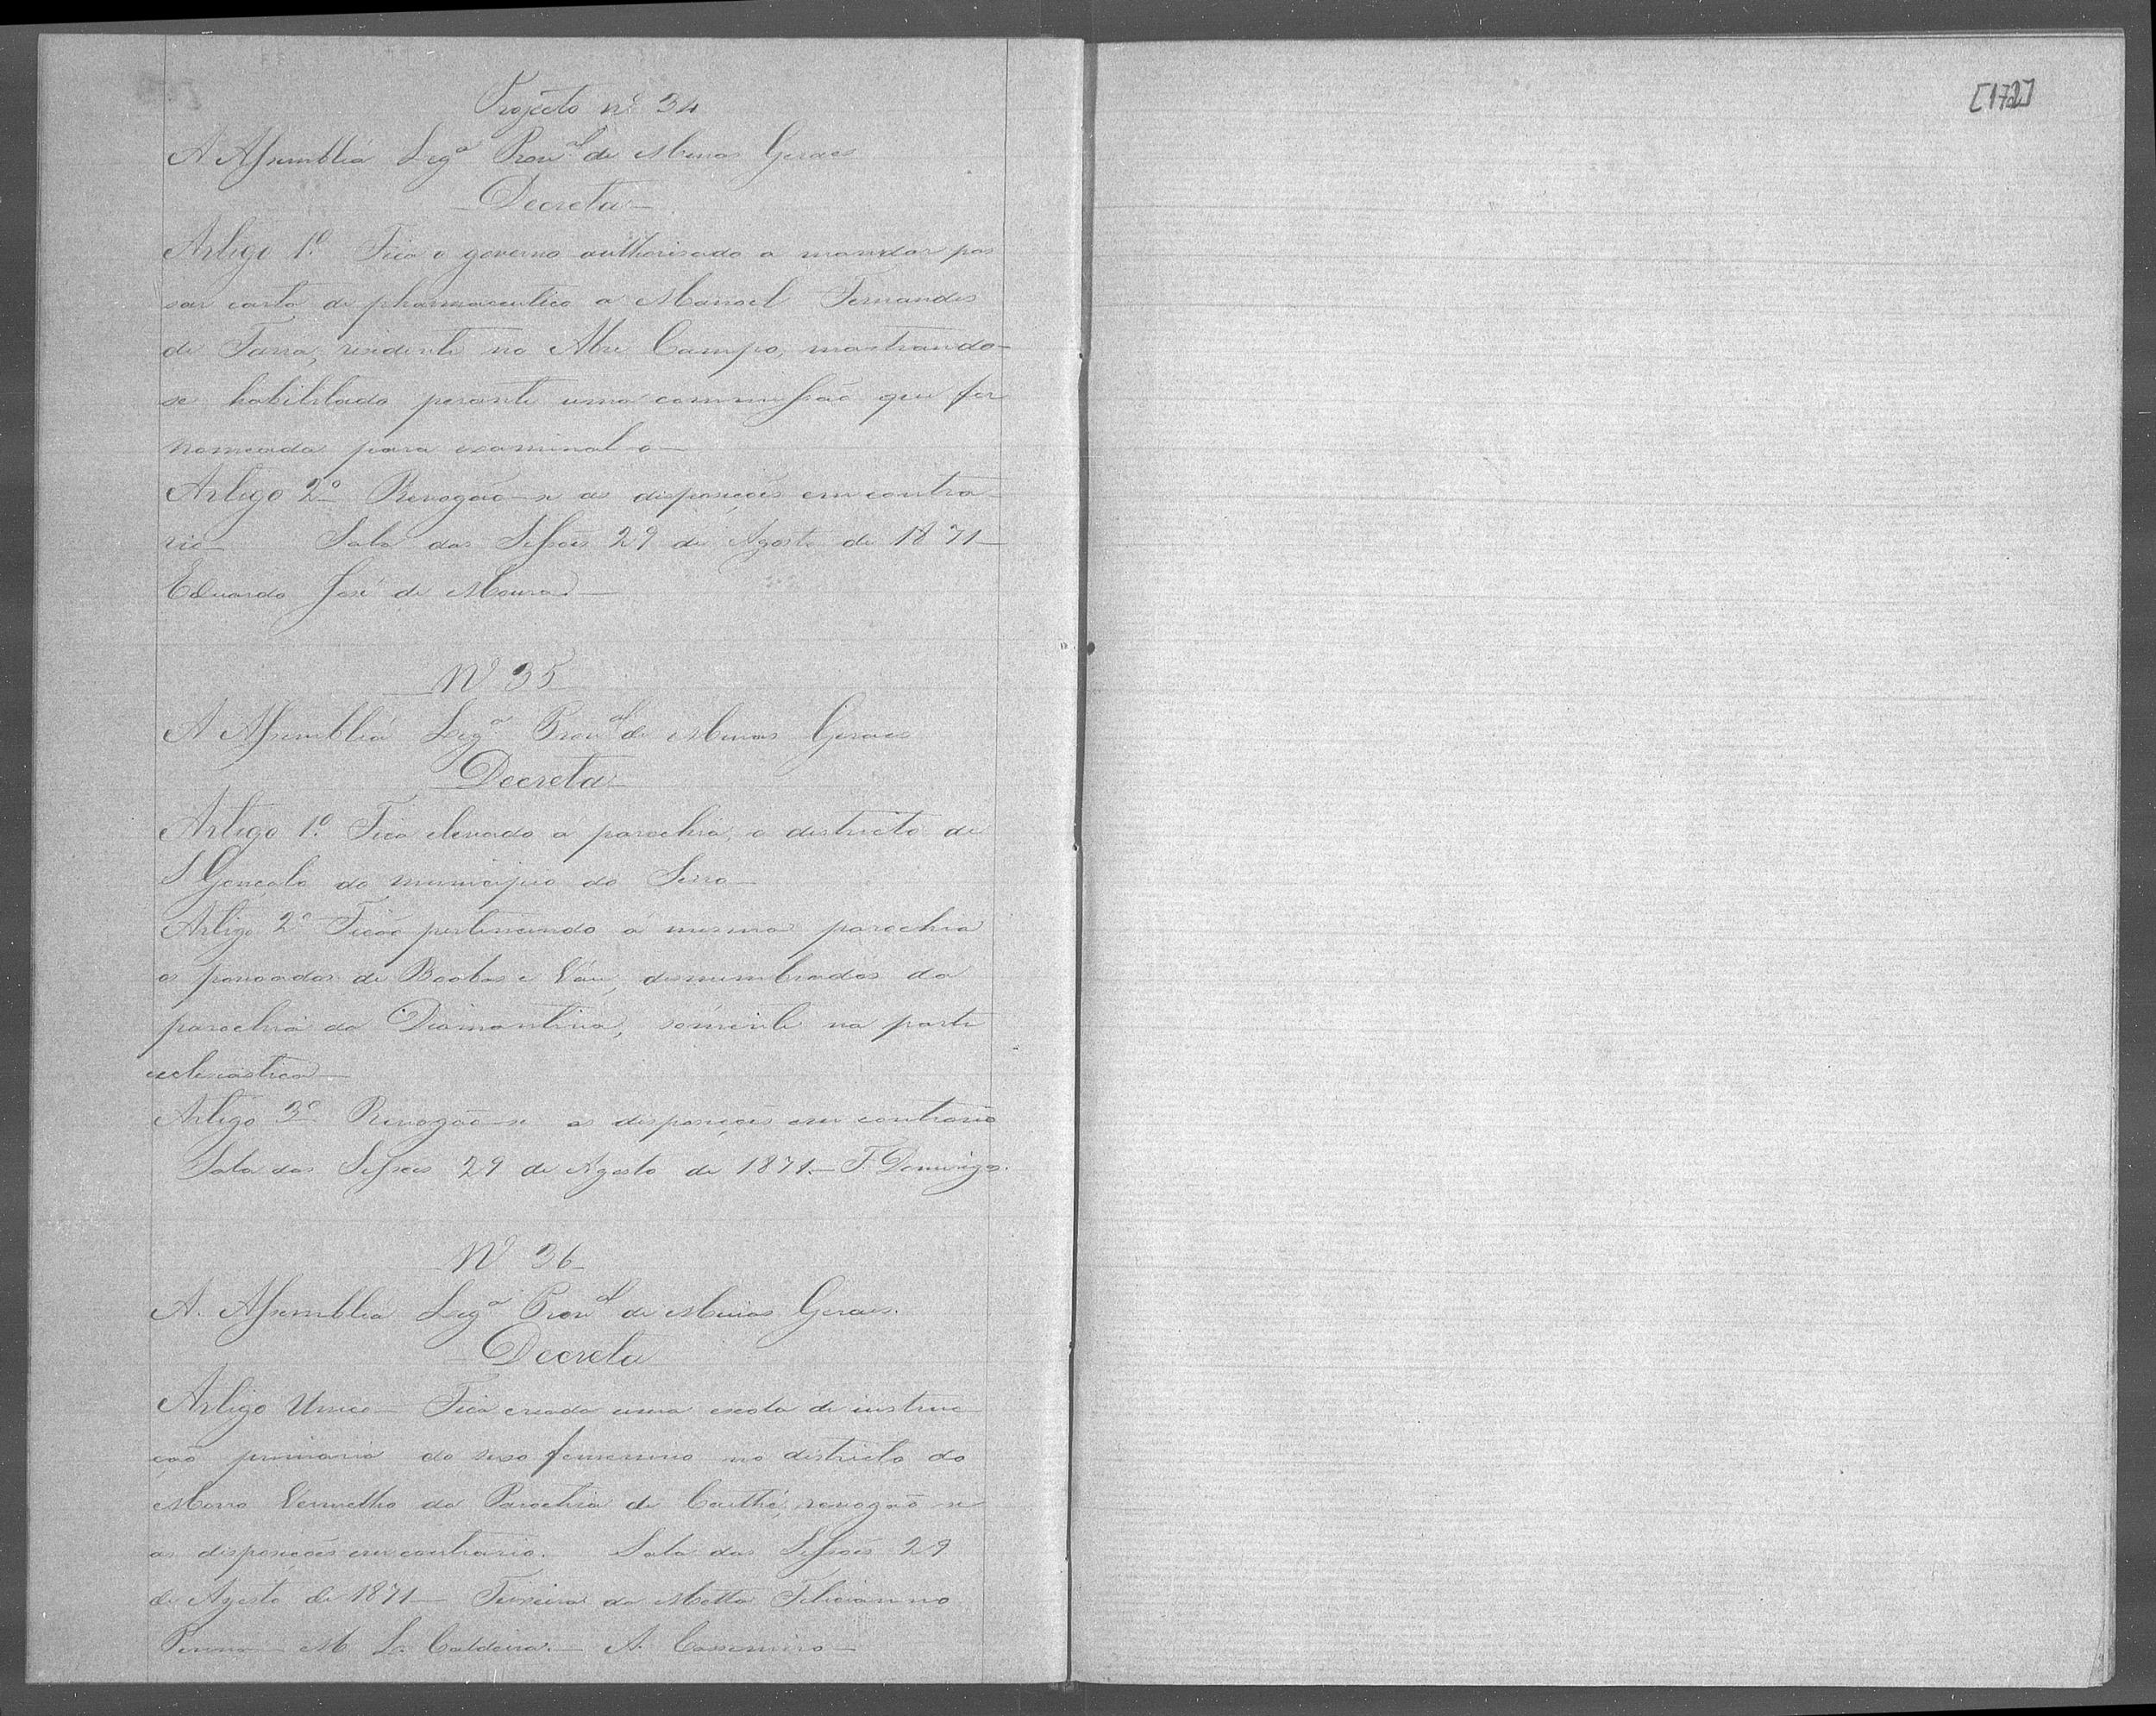 Projecto nº 34
A Assembléa Legª Proval de Minas Geraes
Decreta
Artigo 1º. Fica o governo authorisado a mandar pas
sar carta de pharmaceutico a Manoel Fernandes
de Faria, residente no Abre Campo, mostrando-
se habilitado perante uma commissão que for
nomeada para examinal o
Artigo 2º Revogão-se as disposições em contra-
rio Sala das Sessões 29 de Agosto de 1871
Eduardo José de Moura
Nº 35
A Assembléa Legª Proval de Minas Geraes
Decreta
Artigo 1º. Fica elevado á parochia, o districto de
S Gonçalo do municipio do Serro
Artigo 2º Ficão pertencendo a mesma parochia
os povoados de e Váu, desmembrados da
parochia da Diamantina, sómente na parte
ecclesiastica
Artigo 3º Revogão-se as disposições em contrario
Sala das Sessões 29 de Agosto de 1871.— F. Domingos.
Nº 36
A. Assembléa Legª Proval de Minas Geraes.
Decreta
Artigo Unico— Fica creada uma escola de instruc
ção primaria do sexo femenino no districto do
Morro Vermelho da Parochia de Caethé, revogão se
as disposições em contrario. Sala das Sessões 29
de Agosto de 1871— Teixeira da Motta Feliciano
Penna— M L. Caldeira.— A. Cassemiro—
[172]